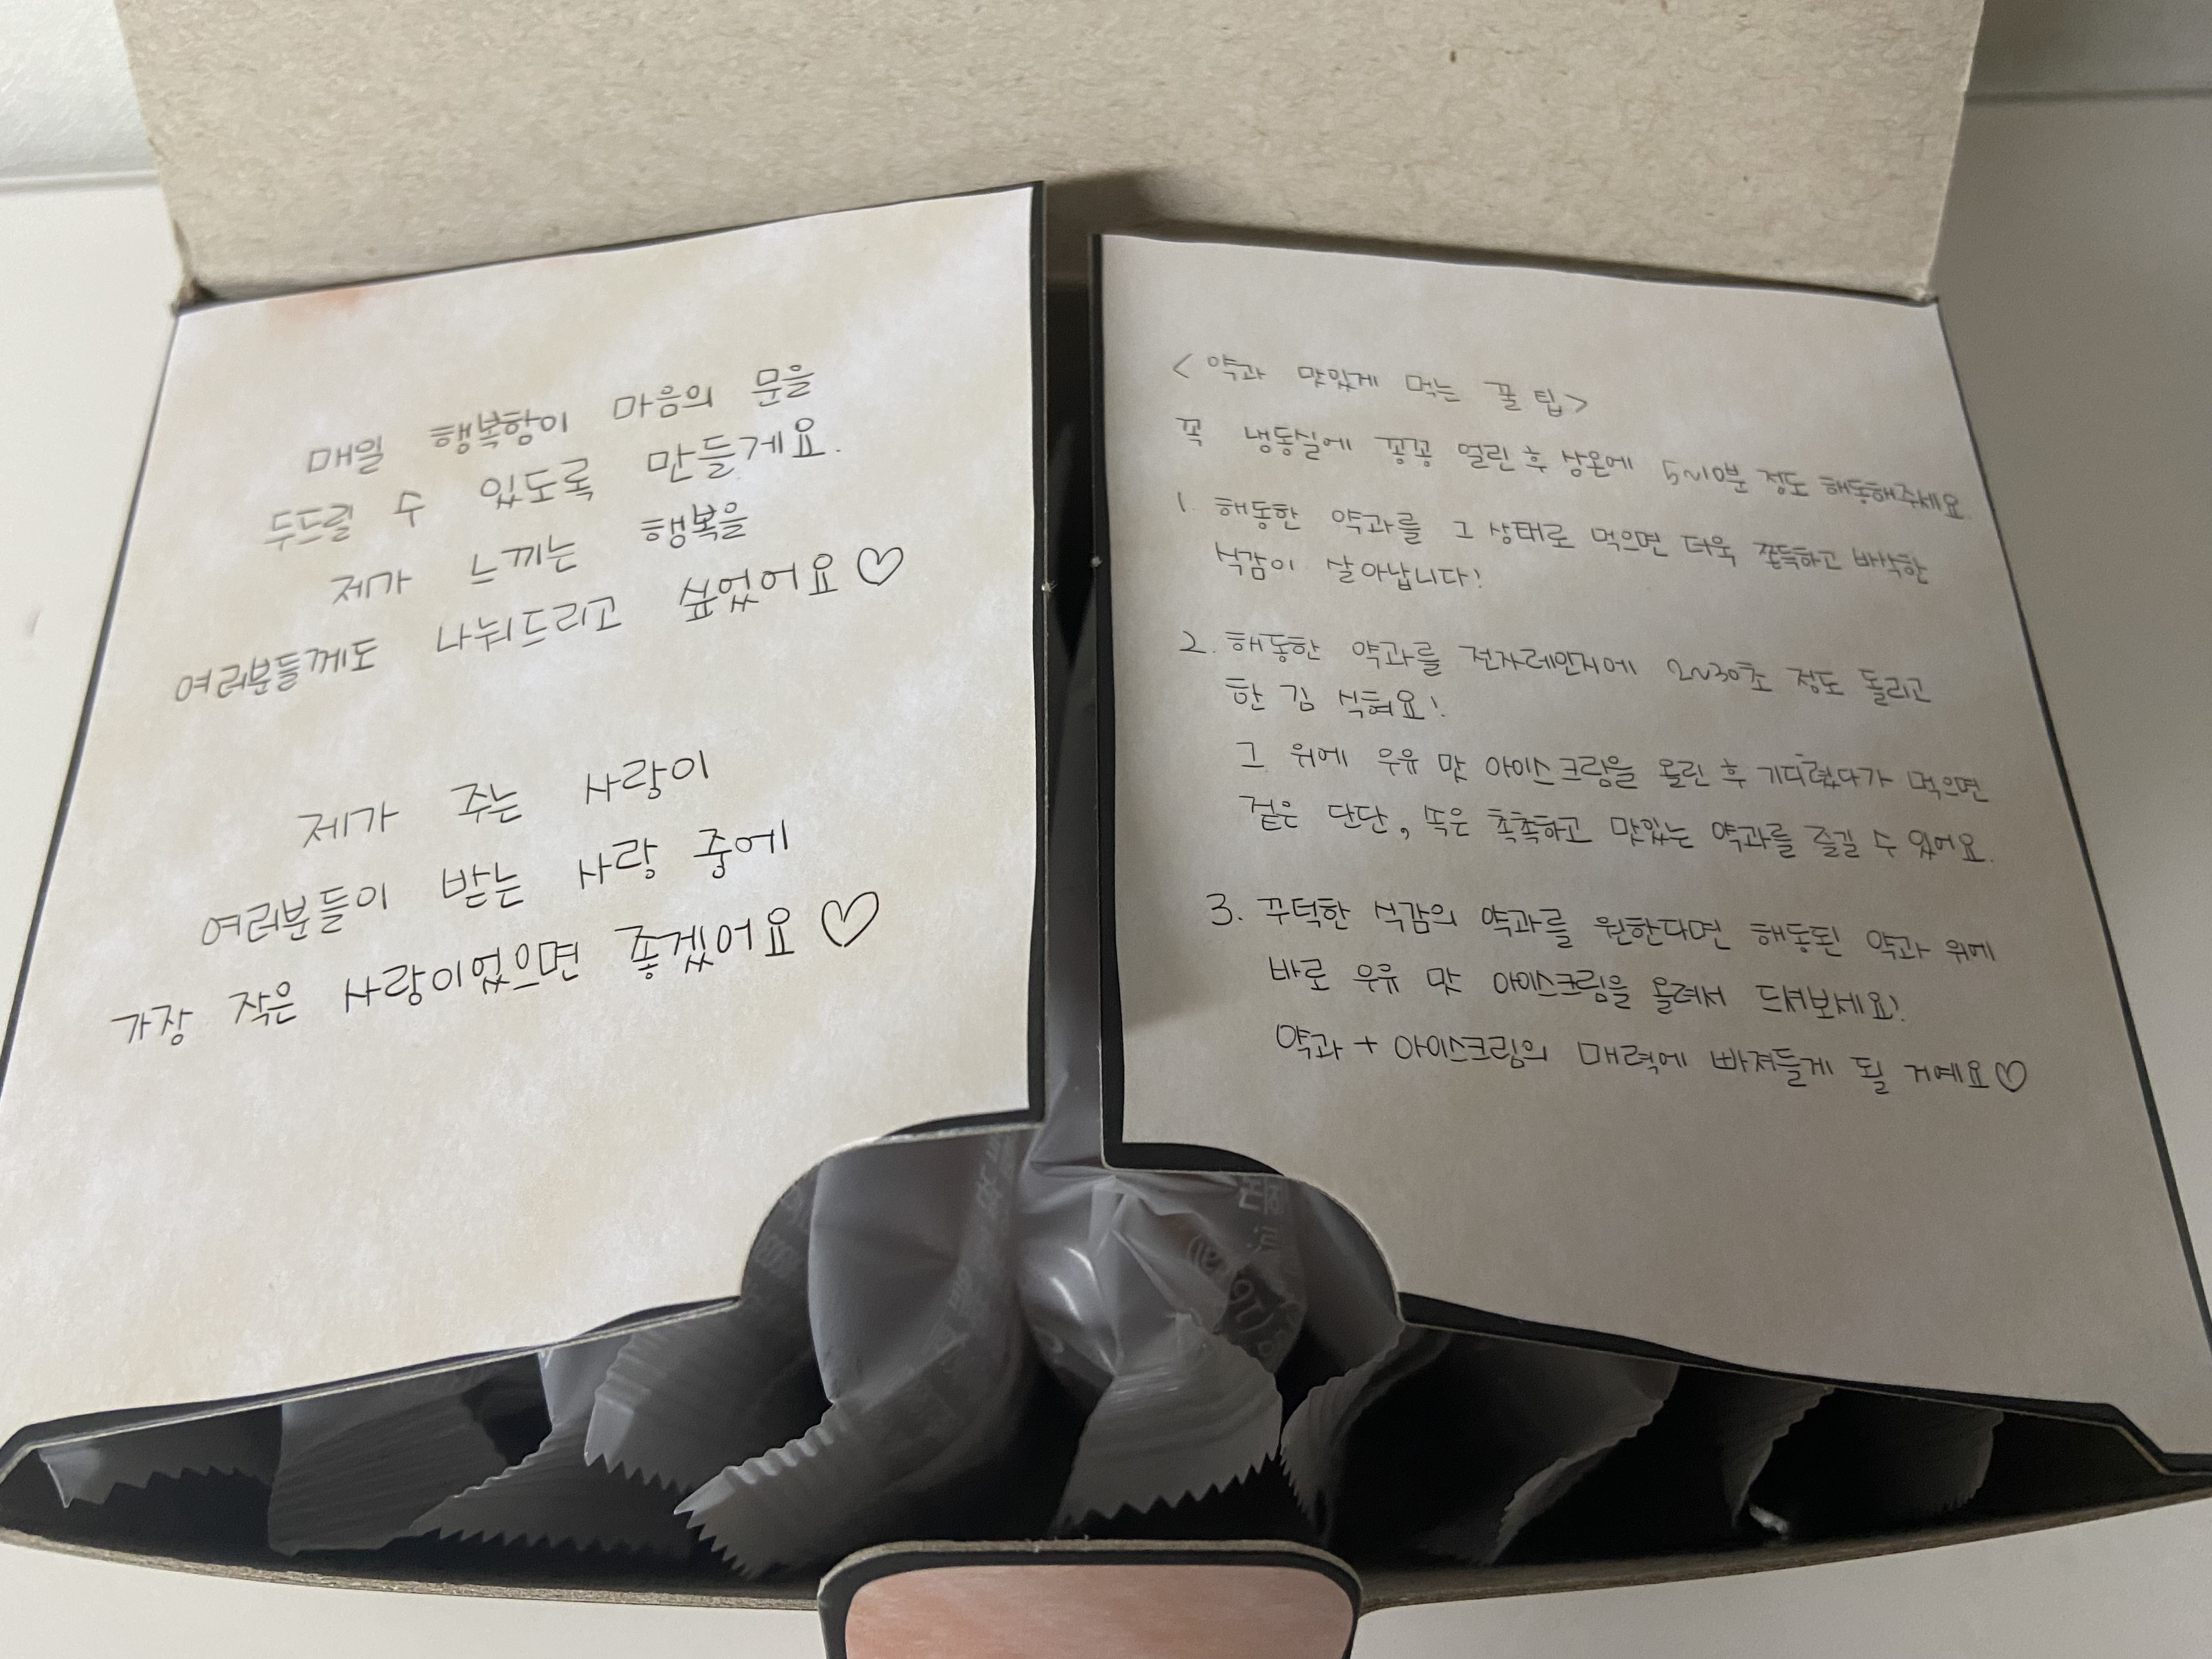 매일 행복함이 마음의 문을
두드릴 수 있도록 만들게요.
제가 느끼는 행복을
여러분들께도 나눠드리고 싶었어요♡
제가 주는 사랑이
여러분들이 받는 사랑 중에
가장 작은 사랑이었으면 좋겠어요♡
<약과 맛있게 먹는 꿀 팁>
꼭 냉동실에 꽁꽁 얼린 후 상온에 5~10분 정도 해동해주세요.
1. 해동한 약과를 그 상태로 먹으면 더욱 쫀득하고 바삭한
식감이 살아납니다!
2. 해동한 약과를 전자레인지에 2~30초 정도 돌리고
한 김 식혀요!
그 위에 우유 맛 아이스크림을 올린 후 기다렸다가 먹으면
겉은 단단, 속은 촉촉하고 맛있는 약과를 즐길 수 있어요.
3. 꾸덕한 식감의 약과를 원한다면 해동된 약과 위에
바로 우유 맛 아이스크림을 올려서 드셔보세요!
약과 + 아이스크림의 매력에 빠져들게 될 거예요♡